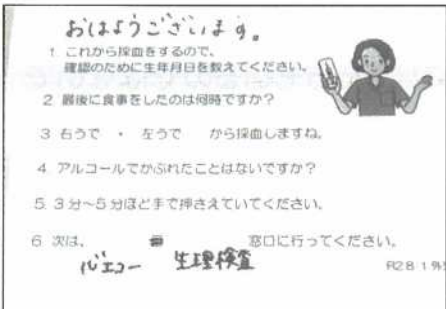 おはようございます。
1 これから採血をするので、
確認のために生年月日を教えてください。
2 最後に食事をしたのは何時ですか?
3 右うで ・ 左うで から採血しますね。
4 アルコールでかぶれたことはないですか?
5 3分~5分ほど手で押さえていてください。
6 次は、 窓口に行ってください。
心エコー 生理検査